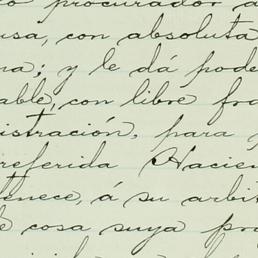 o procurador a
usa, con absoluta
na; y le dá pode
able, con libre fra
istración, para
referida Hacien
tenece, á su arbit
cosa suya pro